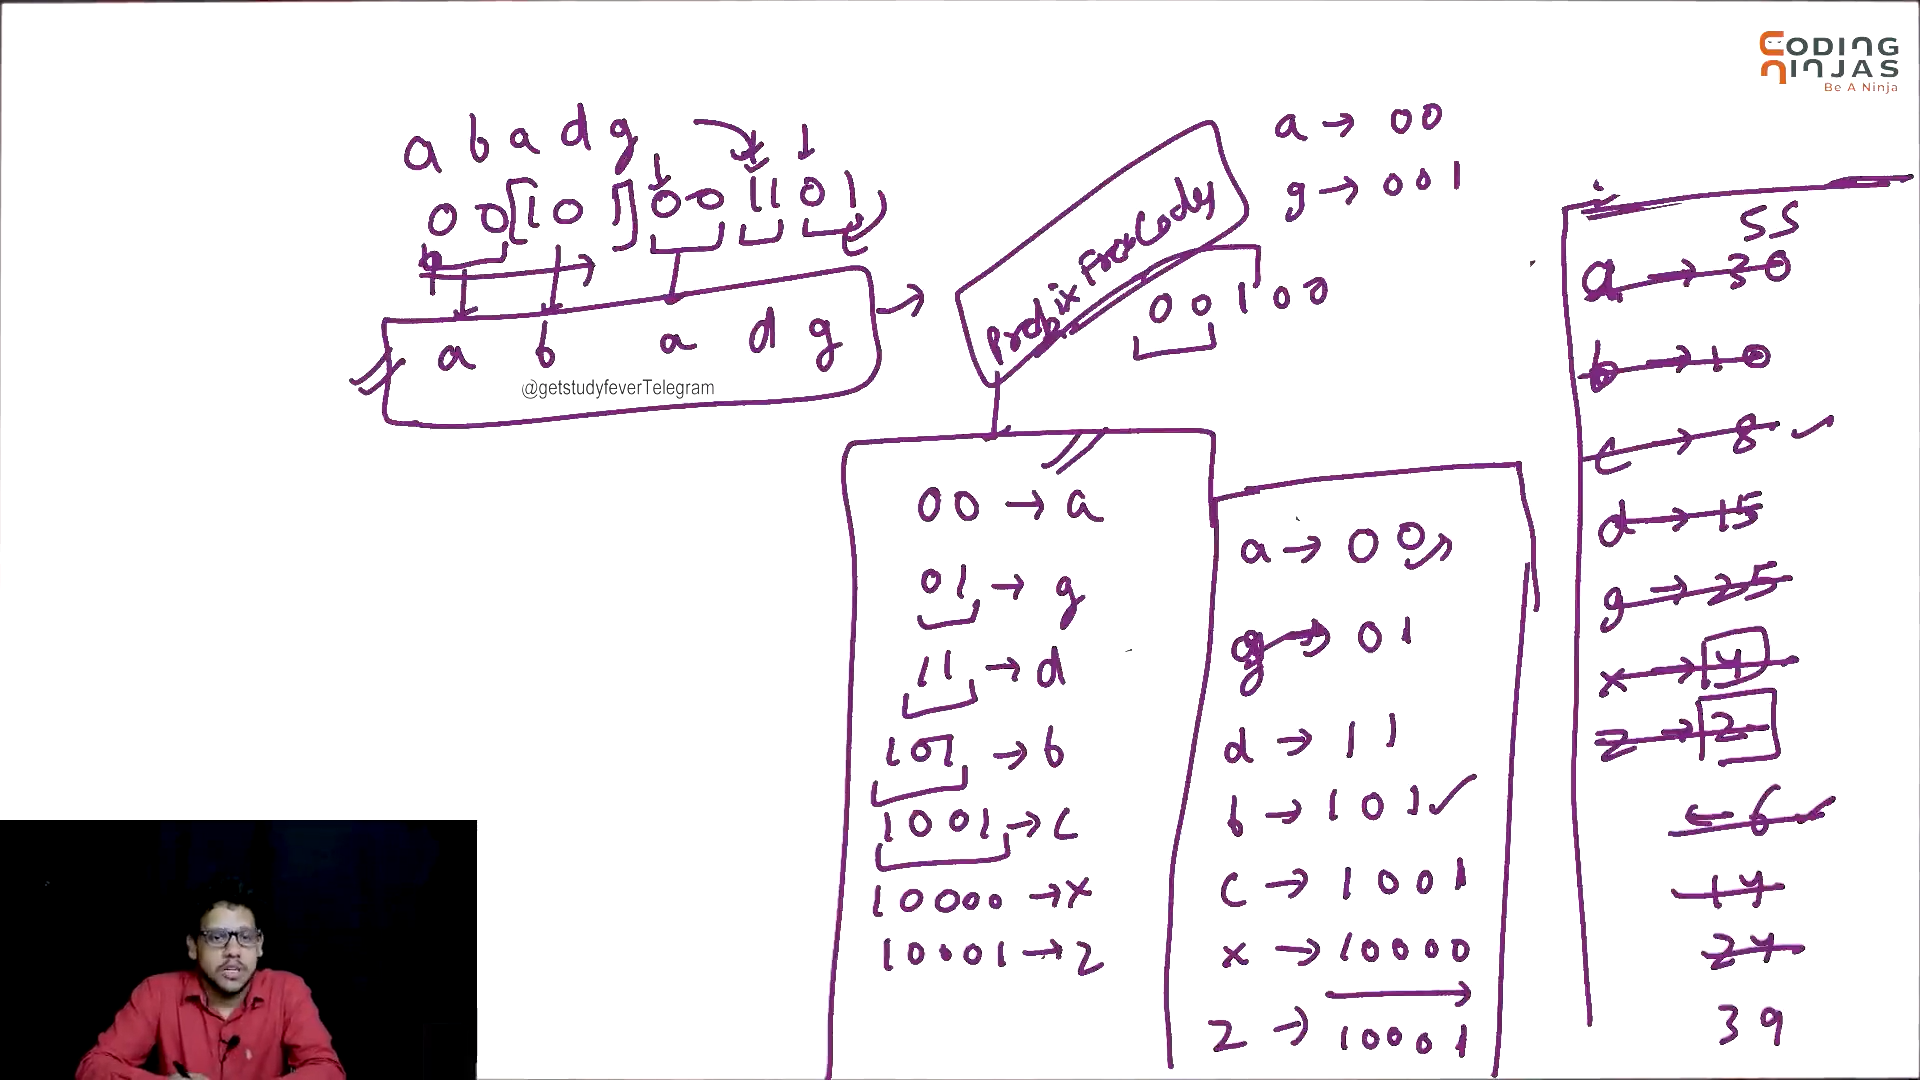 CODING
NINJAS
Be A Ninja
a b a d g
0 0 [1 0 1] 0 0 1 1 0 1
a b a d g
@getstudyfeverTelegram
Prefix Free Codes
a → 00
g → 001
0 0 1 0 0
00 → a
01 → g
11 → d
101 → b
1001 → c
10000 → x
10001 → z
a → 00
g → 01
d → 11
b → 101
c → 1001
x → 10000
z → 10001
55
a → 30
b → 10
c → 8
d → 15
g → 25
x → 4
z → 2
← 6
14
24
39